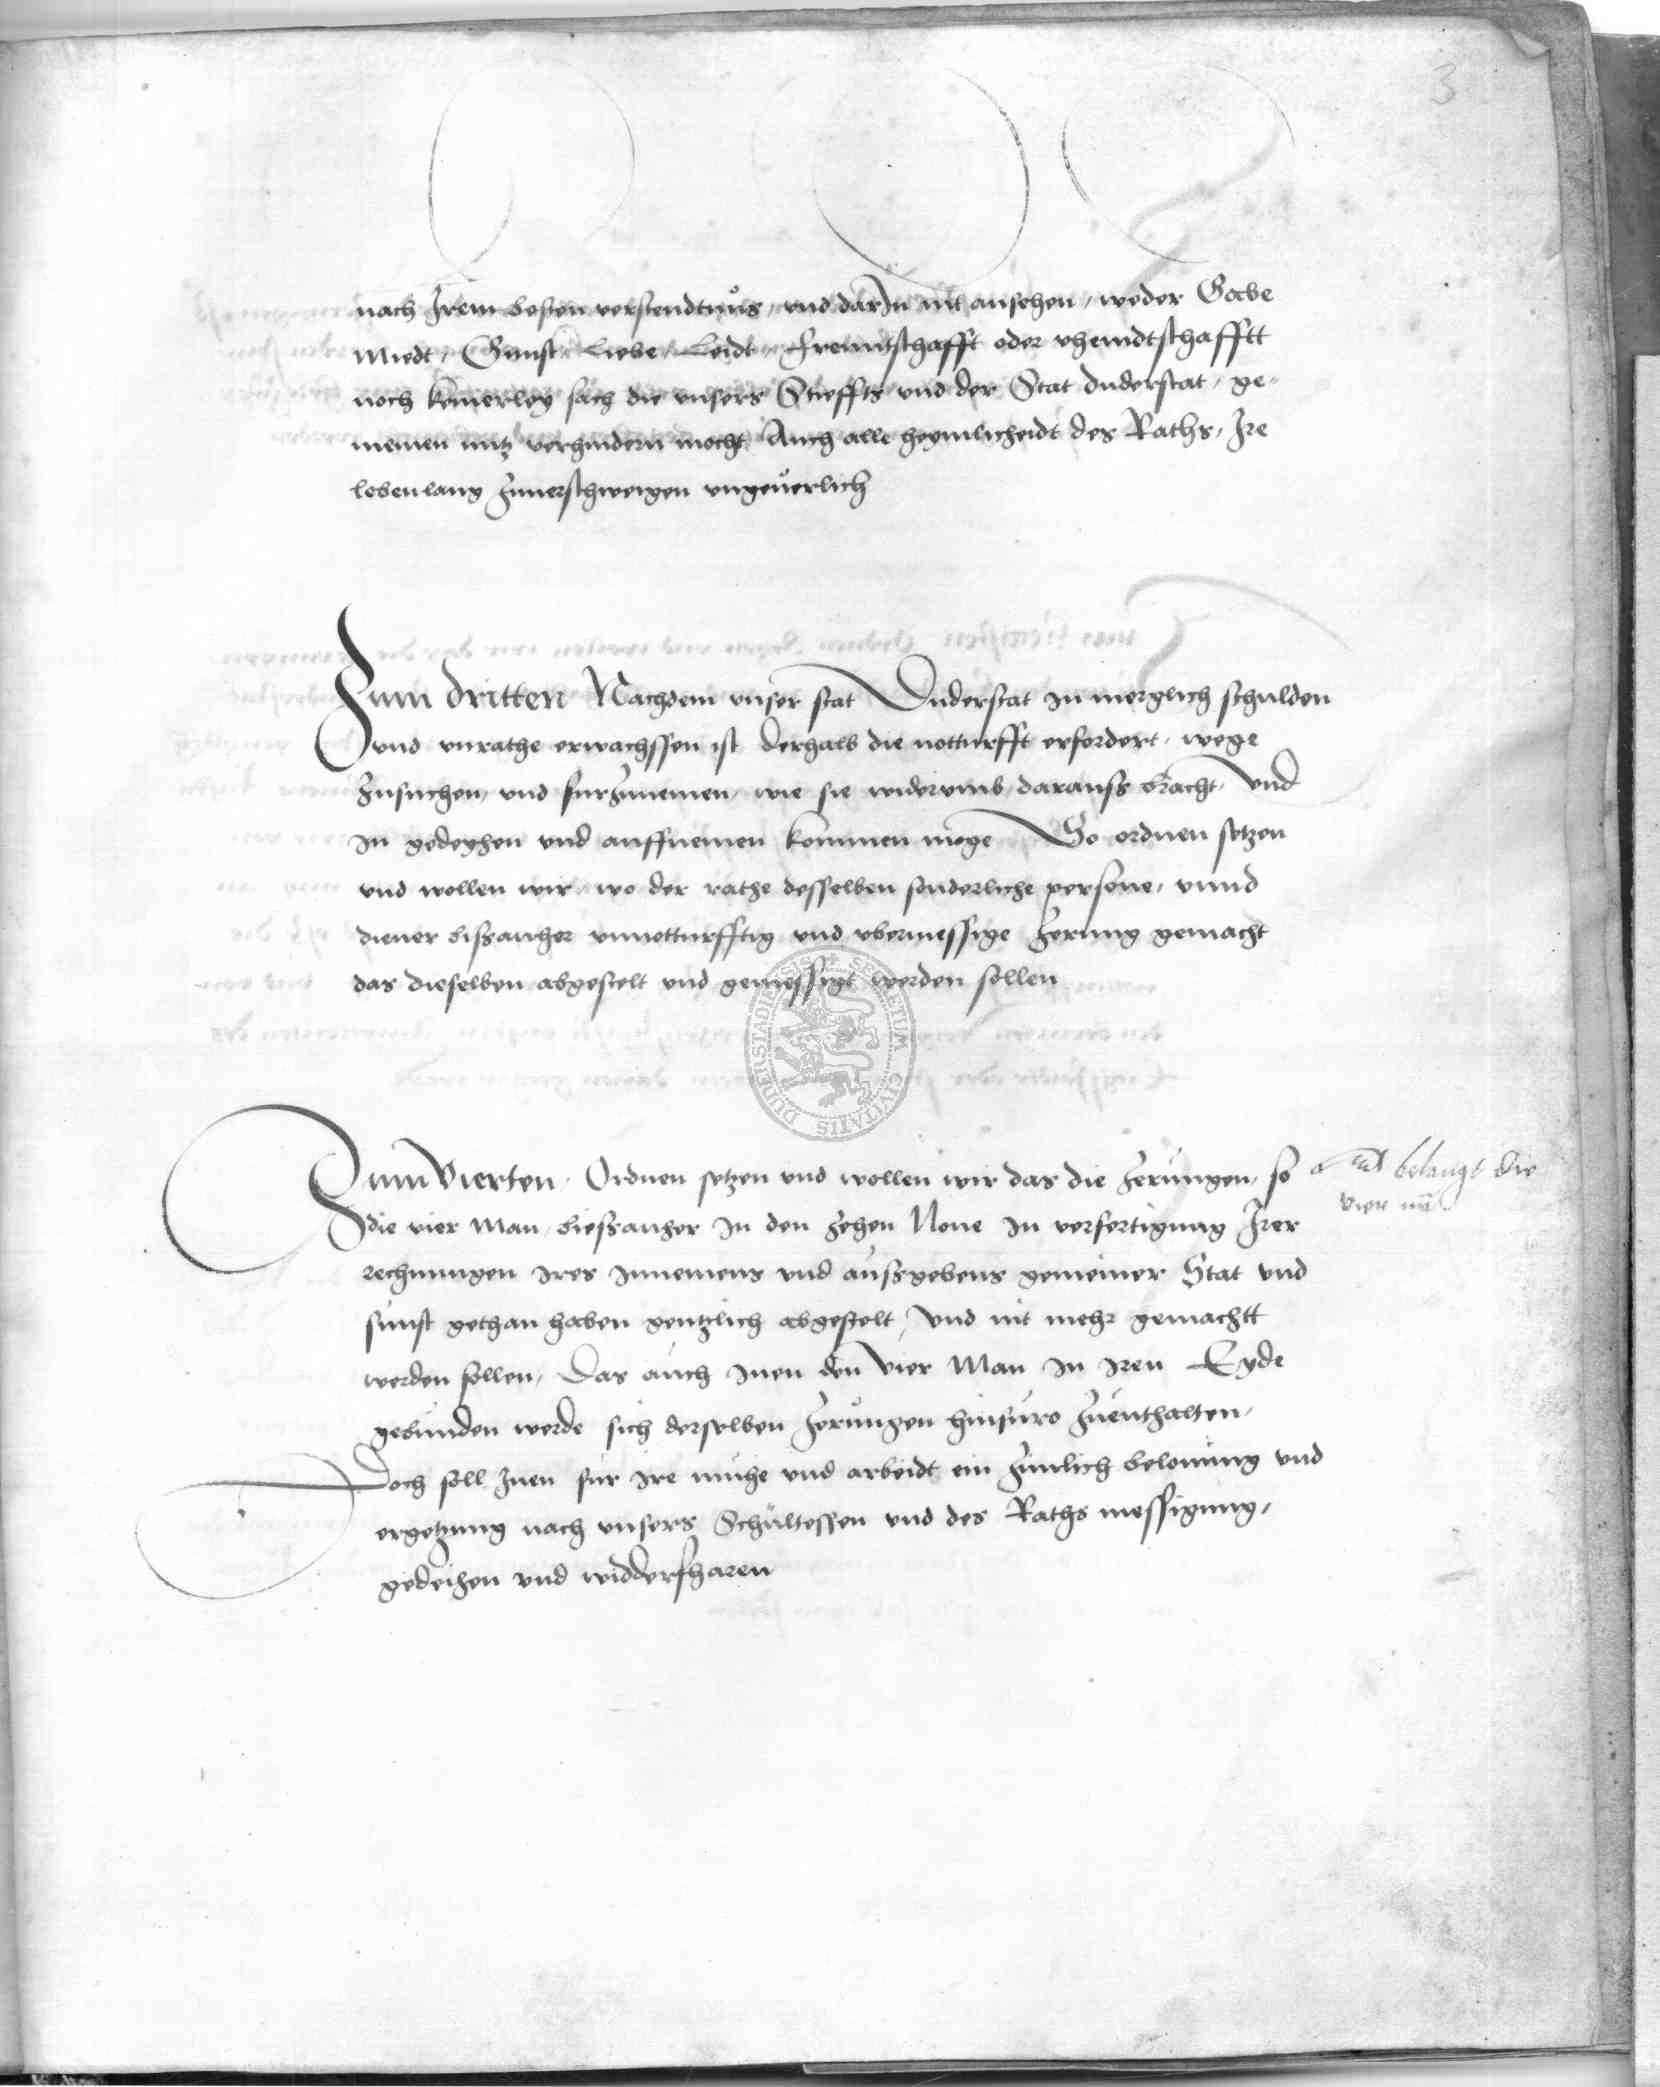 3
nach Irem besten verstendtnus, vnd darIn nit ansehen, weder Gabe
Miedt, Gunst, Liebe, Leidt, Freuntschafft oder vheindtschafftt
noch keinerley sach die vnsers Stieffts vnd der Stat duderstat, ge-
meinen nutz verhindern mocht, Auch alle heymlicheidt des Raths, Ire
lebenlang zuuerschweigen vngeuerlich
Zum dritten Nachdem vnser stat Duderstat in merglich schulden
vnd vnrathe erwachssen ist derhalb die notturfft erfordert, wege
zusuchen, vnd furzunemen, wie sie widerumb daraufs bracht, Vnd
in gedeyhen vnd auffnemen kommen moge So ordnen setzen
vnd wollen wir, wo der rathe desselben sonderliche persone, vnnd
diener bissanher vnnotturfftig vnd vbermessige zerung gemacht
das dieselben abgestelt vnd gemessigt werden sollen
SECRETUM CIVITATIS DUDERSTADIENSIS
Zum Vierten, Ordnen setzen vnd wollen wir das die zerungen, so
die vier Man, biessanher In den zehen None In verfertigung Irer
rechnungen ires Innemens vnd aussgebens gemeiner Stat vnd
sunst gethan haben gentzlich abgestelt, Vnd nit mehr gemachtt
werden sollen, Das auch Inen den Vier Man In iren Eyde
gebunden werde sich derselben zerungen hinfuro zuenthalten,
Doch soll Inen fur ire muhe vnd arbeidt ein zimlich belonung vnd
ergetzung nach vnsers Schultessen vnd des Raths messigung,
gedeihen vnd widderfharen
belangt die
vier